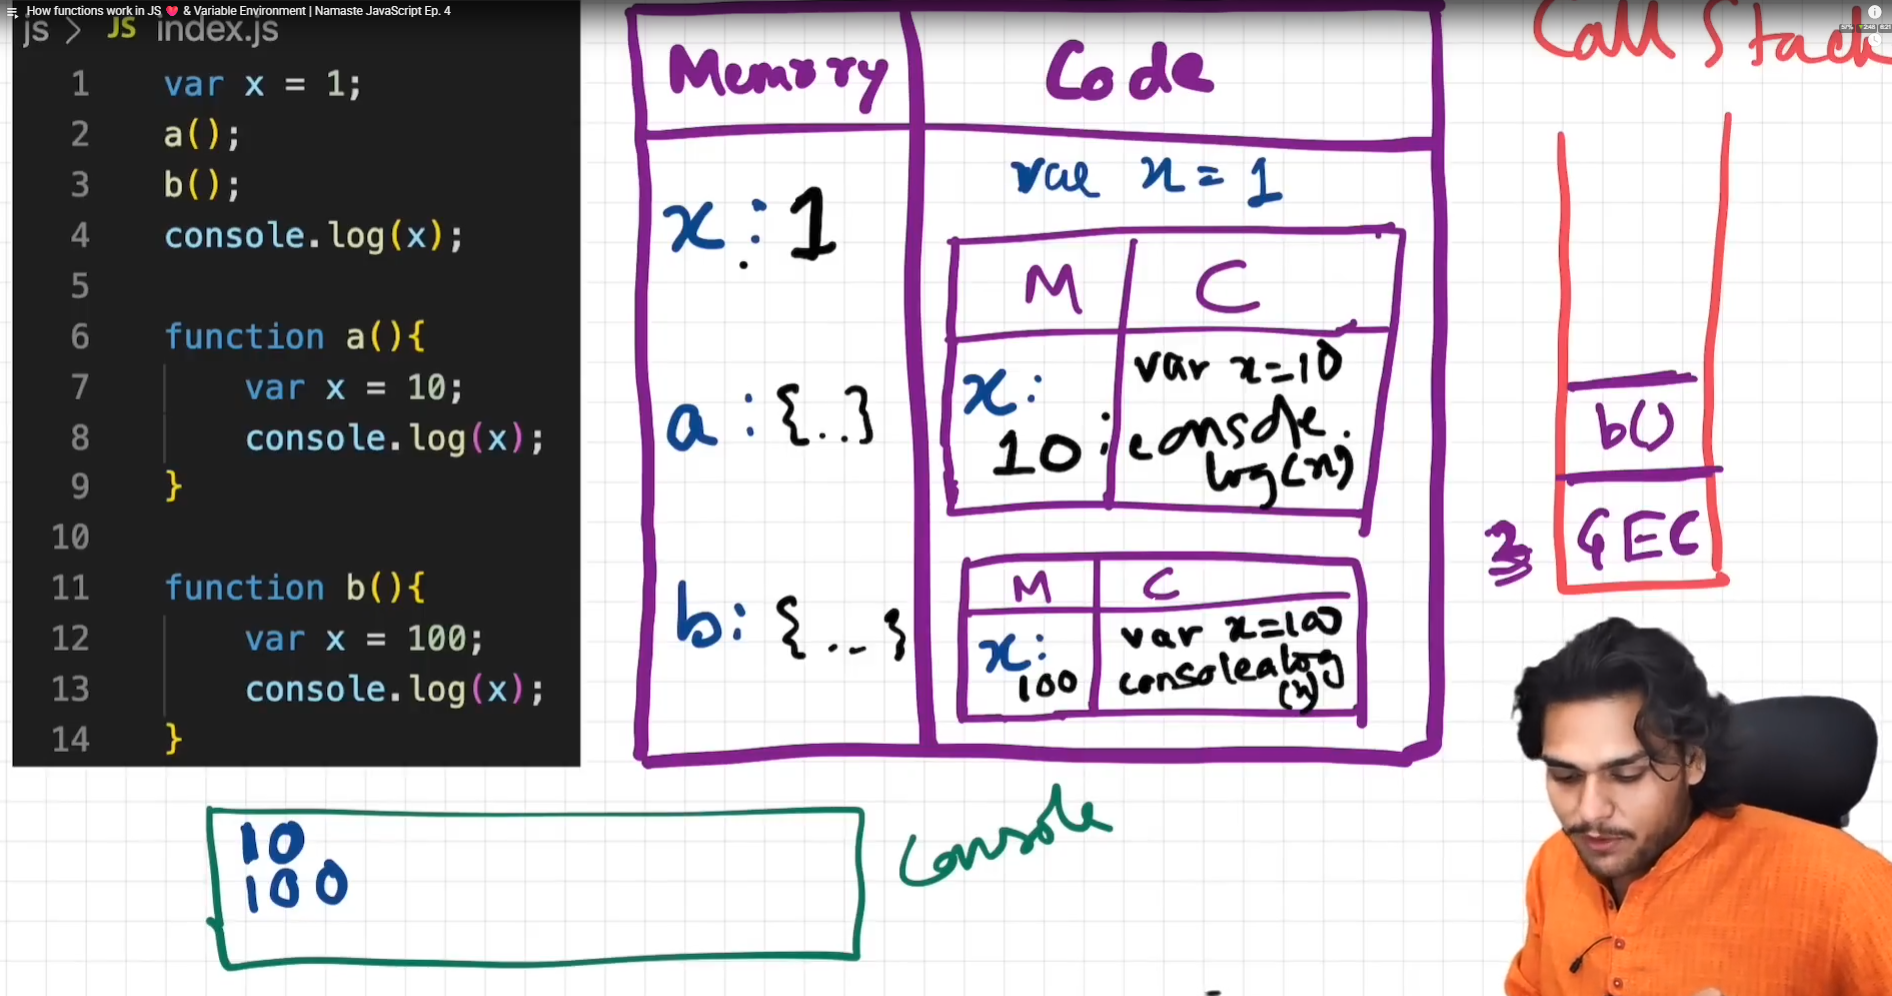 How functions work in JS ❤️ & Variable Environment | Namaste JavaScript Ep. 4
js > JS index.js
1 var x = 1;
2 a();
3 b();
4 console.log(x);
5
6 function a(){
7 var x = 10;
8 console.log(x);
9 }
10
11 function b(){
12 var x = 100;
13 console.log(x);
14 }
Memory
Code
x : 1
a : {..}
b : {...}
var x = 1
M
C
x :
10
var x=10
console.
log(x)
M
C
x :
100
var x=100
console.log
(x)
Call Stack
b()
GEC
10
100
Console